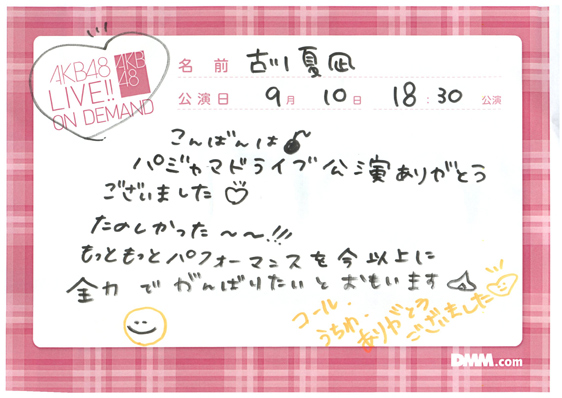 AKB48
LIVE!!
ON DEMAND
AKB
48
名 前 古川夏凪
公演日 9月 10日 18:30 公演
こんばんは
パジャマドライブ公演ありがとう
ございました♡
たのしかった〜〜!!!
もっともっとパフォーマンスを今以上に
全力でがんばりたいとおもいます
コール・
うちわ・
ありがとう
ございました♡
DMM.com